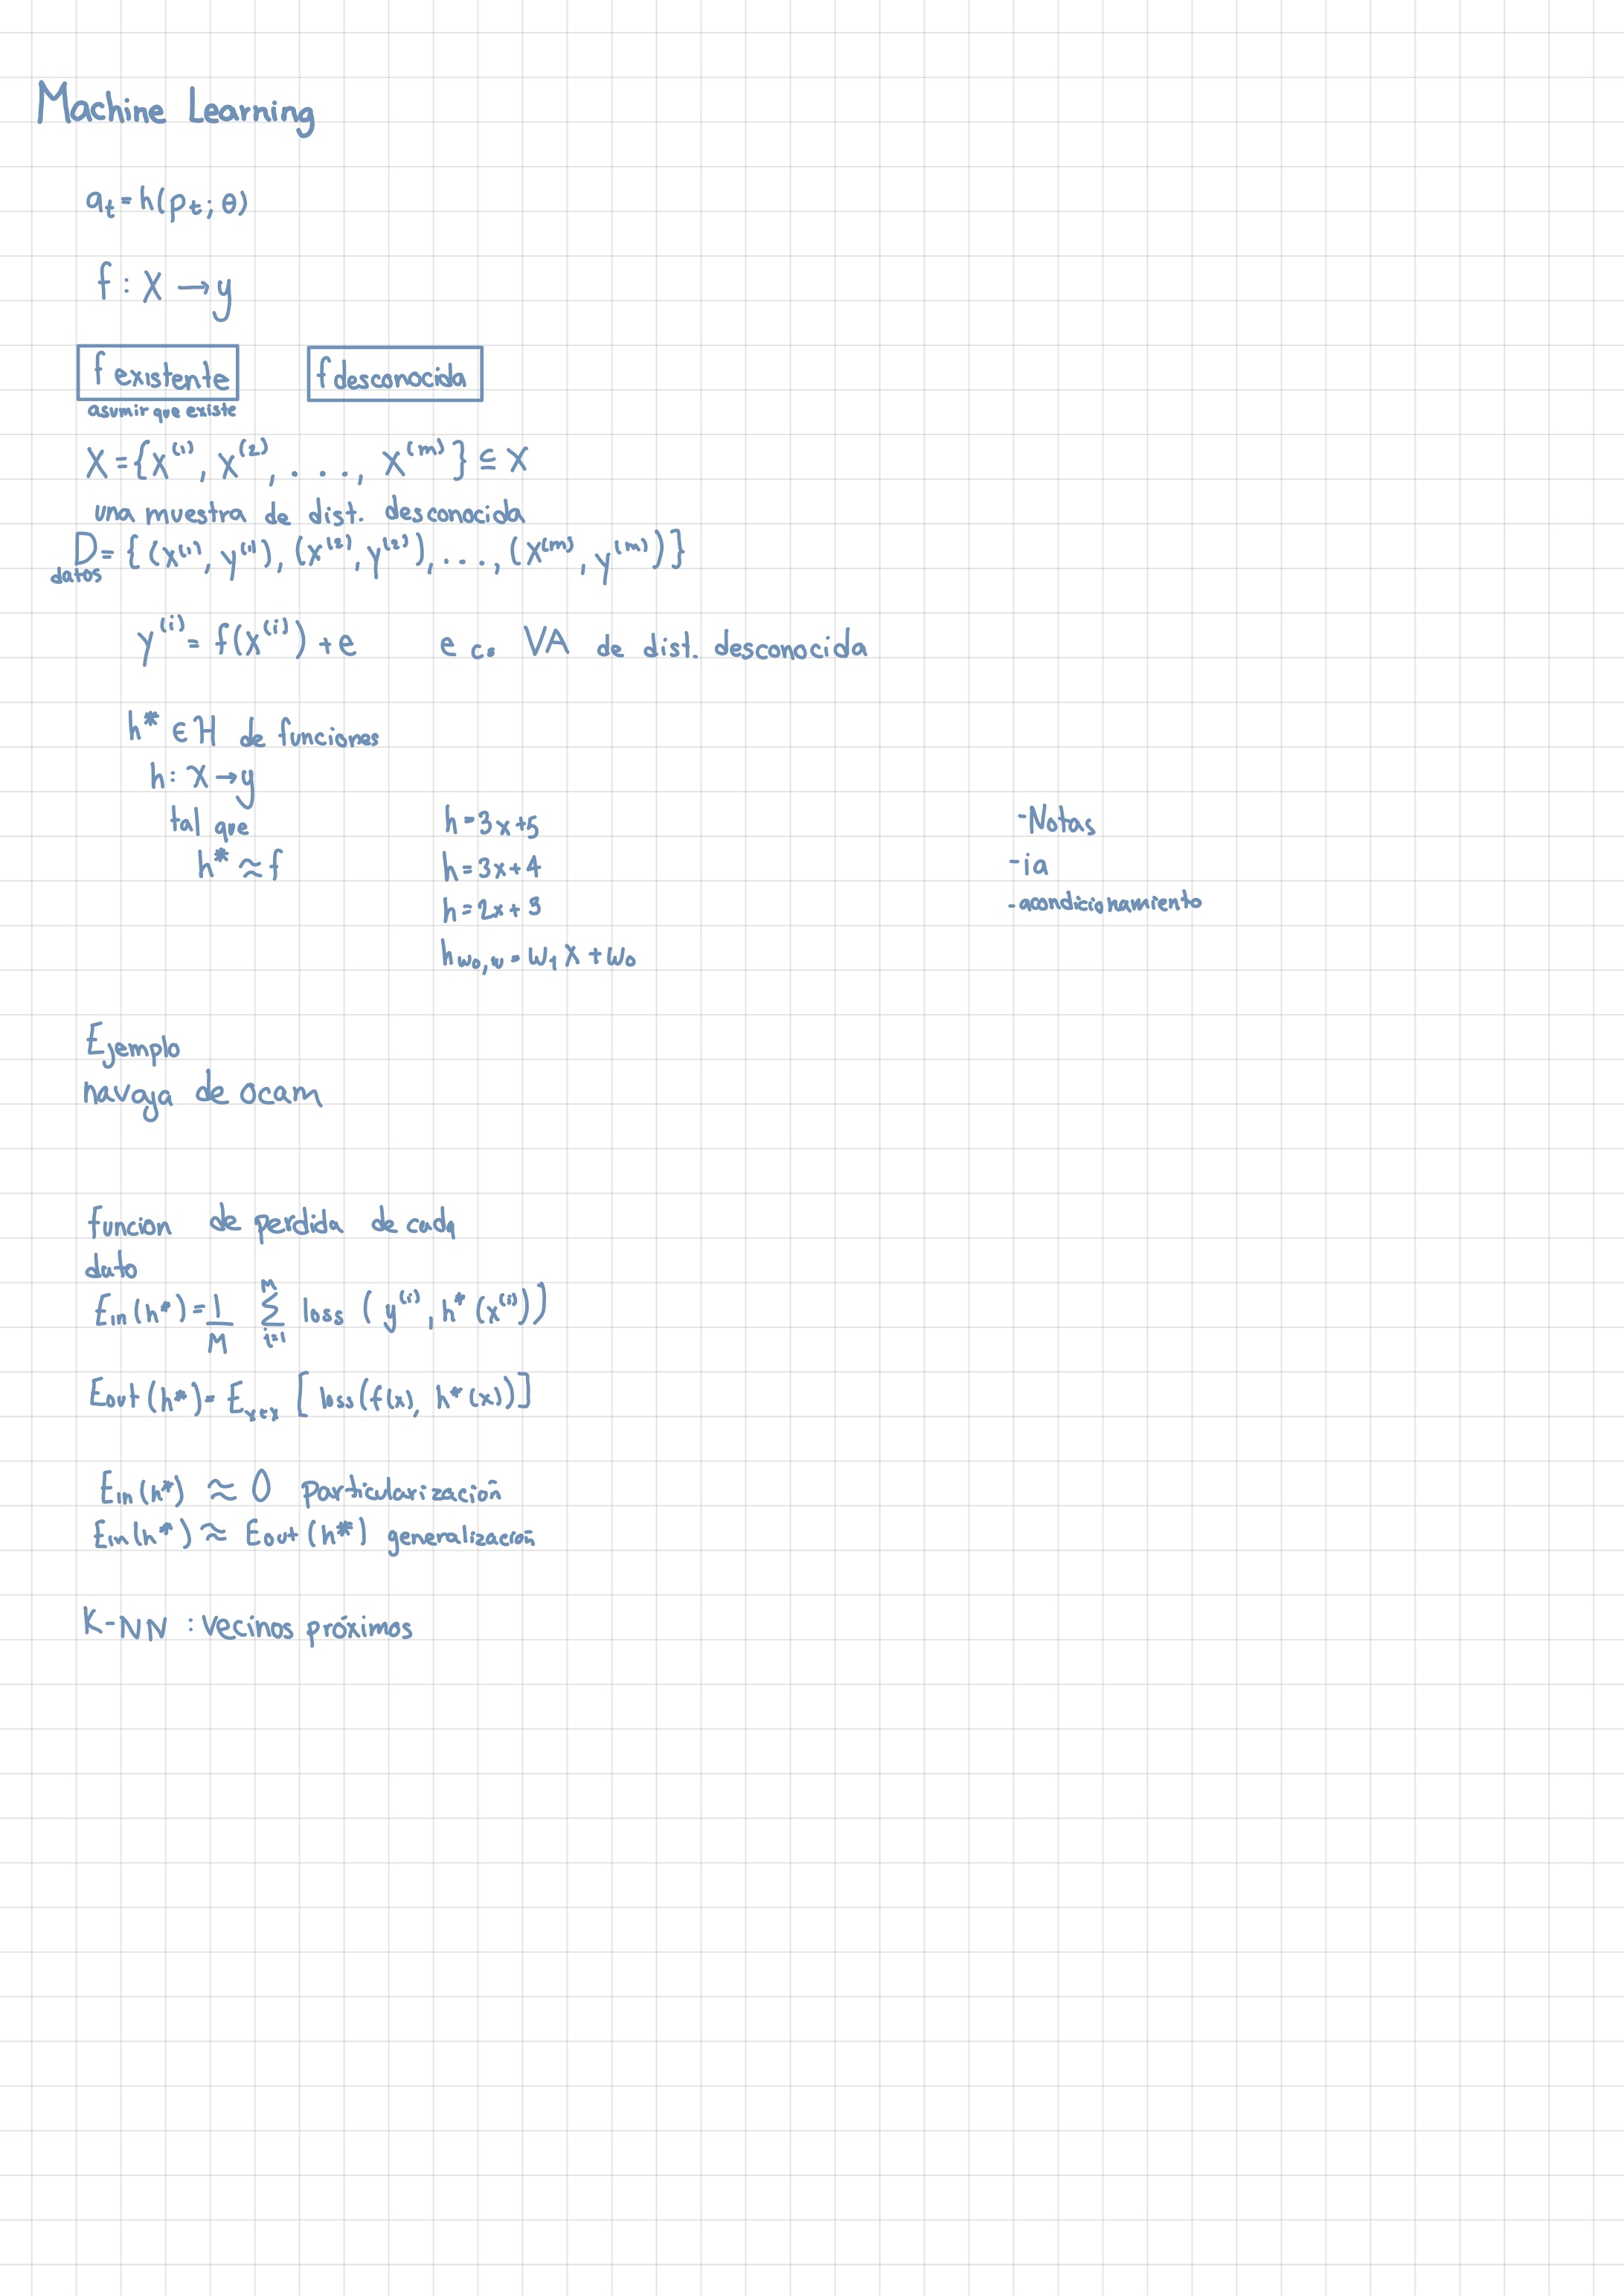 Machine Learning
a_t = h(p_t; θ)
f : X → y
f existente    f desconocida
asumir que existe
X = {x^(1), x^(2), . . ., x^(m)} ⊆ X
una muestra de dist. desconocida
D = { (x^(1), y^(1)), (x^(2), y^(2)), ..., (x^(m), y^(m)) }
datos
y^(i) = f(x^(i)) + e    e VA de dist. desconocida
h* ∈ H de funciones
h : X → y
tal que
h* ≈ f
h = 3x+5
h = 3x+4
h = 2x+3
h_{w0,w} = w_1 x + w_0
-Notas
-ia
-acondicionamiento
Ejemplo
navaja de ocam
funcion de perdida de cada
dato
Ein(h*) = 1/M Σ_{i=1}^{M} loss (y^(i), h*(x^(i)))
Eout(h*) = E_{x∈x} [loss(f(x), h*(x))]
Ein(h*) ≈ 0 particularización
Ein(h*) ≈ Eout(h*) generalización
K-NN : Vecinos próximos